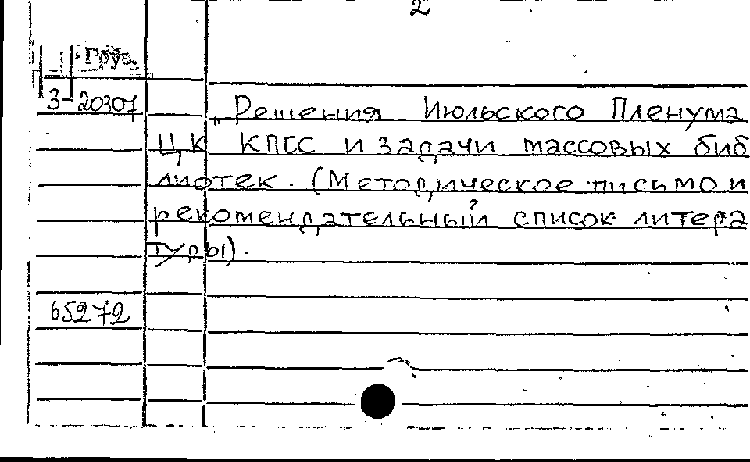 2
Груз.
3-20307
Решения Июльского Пленума
ЦК КПСС и задачи массовых биб
лиотек. (Методическое письмо и
рекомендательный список литера
туры).
65272